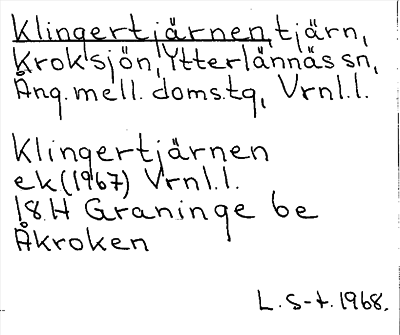 Klingertjärnen, tjärn,
Kroksjön, Ytterlännäs sn,
Ång. mell. doms.tg, Vrnl.l.
Klingertjärnen
ek (1967) Vrnl.l.
18H Graninge 6e
Åkroken
L. S-t. 1968.